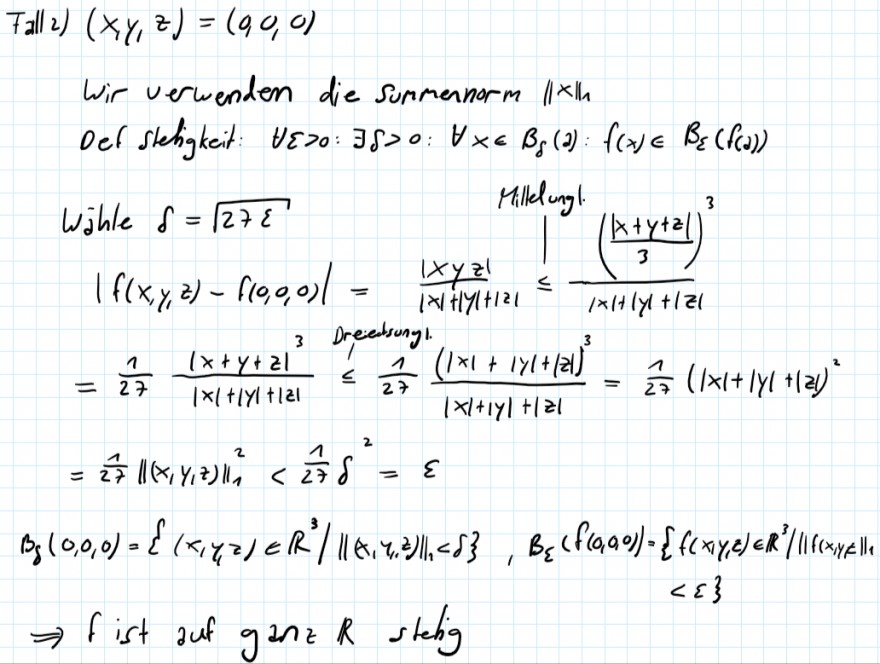 Fall 2) (x,y,z) = (0,0,0)
Wir verwenden die Summennorm ||x||₁
Def Stetigkeit: ∀ε>0: ∃δ>0: ∀x∈ B_δ(a): f(x) ∈ B_ε(f(a))
Wähle δ = √(27ε)
Mittelungl.
|f(x,y,z) - f(0,0,0)| = |xyz| / (|x|+|y|+|z|) ≤ (|x+y+z| / 3)³ / (|x|+|y|+|z|)
Dreiecksungl.
= 1/27 |x+y+z|³ / (|x|+|y|+|z|) ≤ 1/27 (|x| + |y|+|z|)³ / (|x|+|y|+|z|) = 1/27 (|x|+|y|+|z|)²
= 1/27 ||(x,y,z)||₁² < 1/27 δ² = ε
B_δ(0,0,0) = { (x,y,z) ∈ ℝ³ / ||(x,y,z)||₁ < δ} , B_ε(f(0,0,0)) = { f(x,y,z) ∈ ℝ³ / ||f(x,y,z||₁
< ε}
⇒ f ist auf ganz ℝ stetig